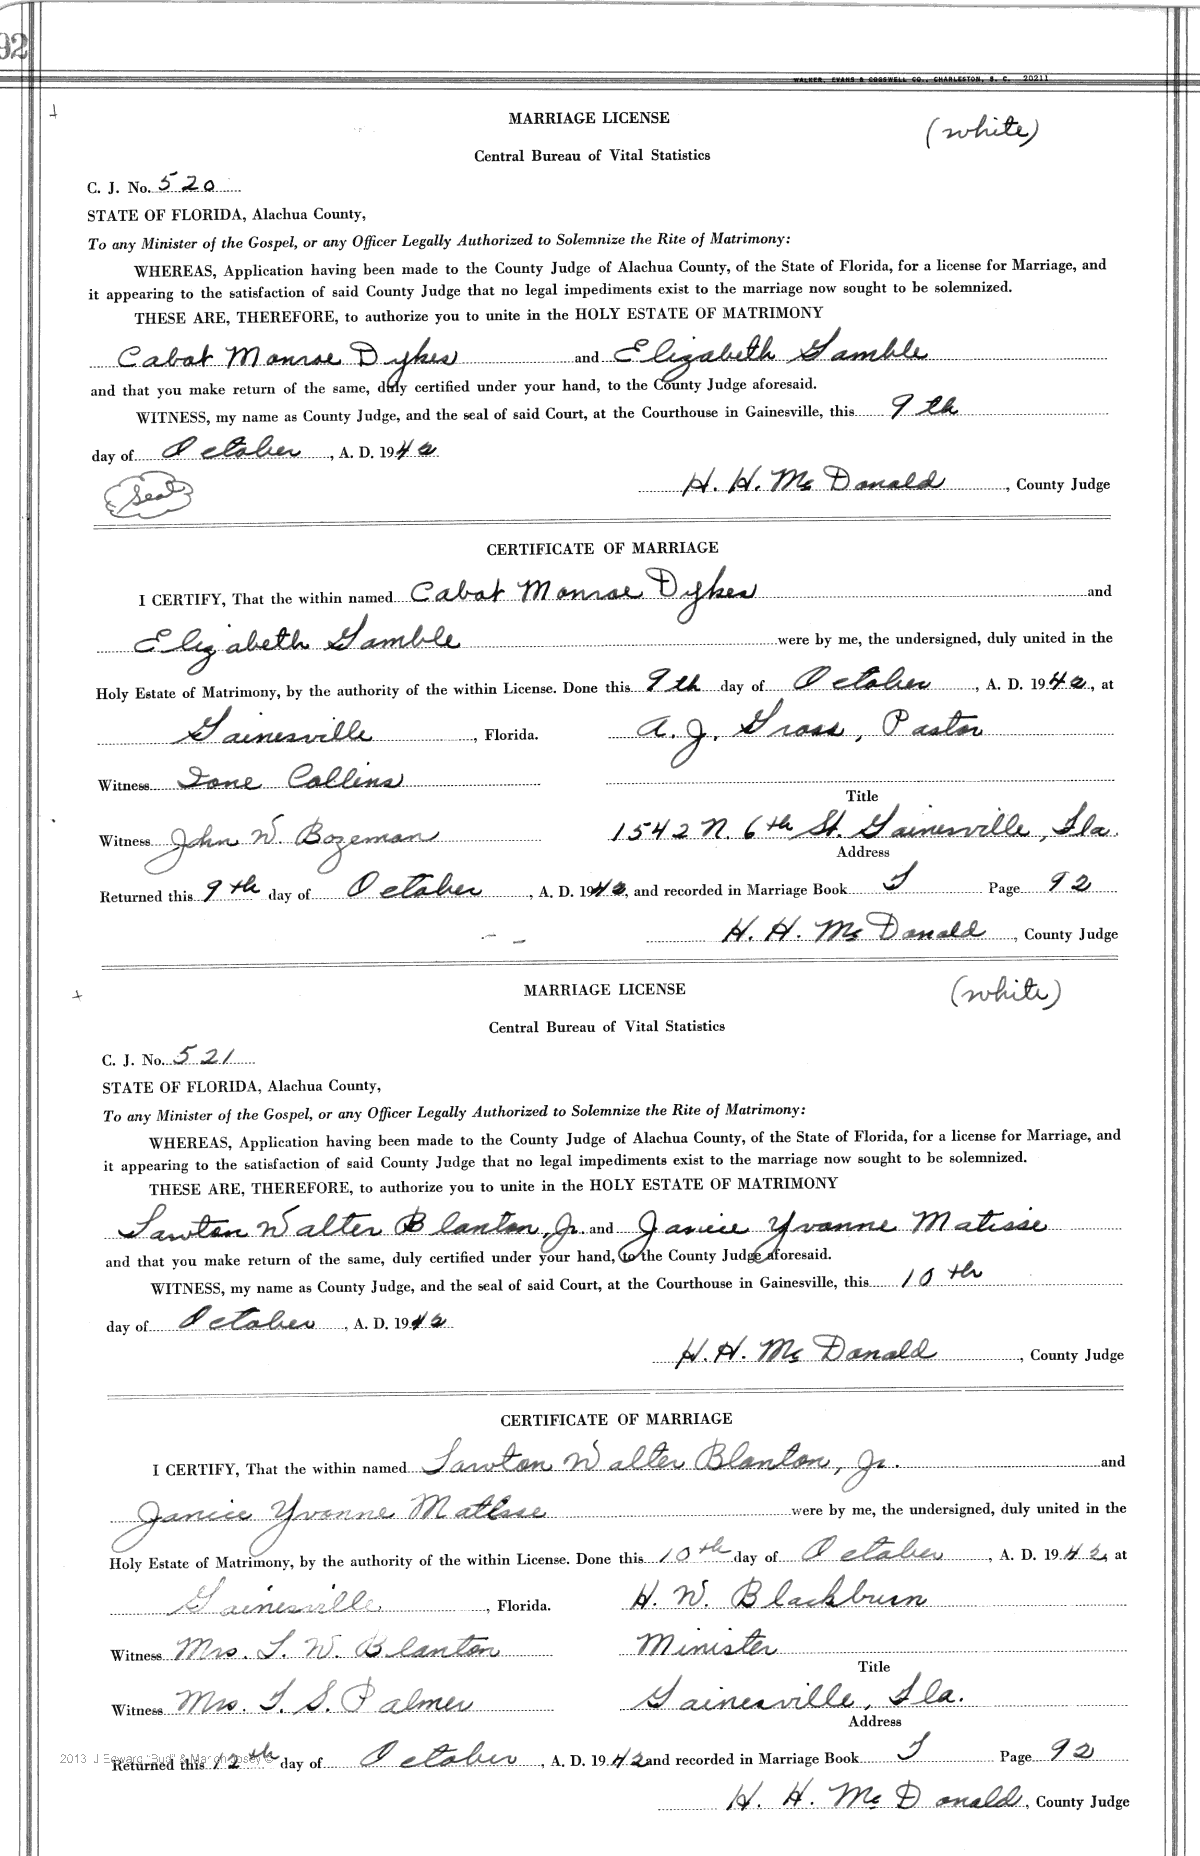 92
WALKER, EVANS & COGSWELL CO., CHARLESTON, S. C. 20211
MARRIAGE LICENSE
(white)
Central Bureau of Vital Statistics
C. J. No. 520
STATE OF FLORIDA, Alachua County,
To any Minister of the Gospel, or any Officer Legally Authorized to Solemnize the Rite of Matrimony:
WHEREAS, Application having been made to the County Judge of Alachua County, of the State of Florida, for a license for Marriage, and
it appearing to the satisfaction of said County Judge that no legal impediments exist to the marriage now sought to be solemnized.
THESE ARE, THEREFORE, to authorize you to unite in the HOLY ESTATE OF MATRIMONY
Cabot Monroe Dykes and Elizabeth Gamble
and that you make return of the same, duly certified under your hand, to the County Judge aforesaid.
WITNESS, my name as County Judge, and the seal of said Court, at the Courthouse in Gainesville, this 9th
day of October, A. D. 1942
(Seal) H. H. McDonald, County Judge
CERTIFICATE OF MARRIAGE
I CERTIFY, That the within named Cabot Monroe Dykes and
Elizabeth Gamble were by me, the undersigned, duly united in the
Holy Estate of Matrimony, by the authority of the within License. Done this 9th day of October, A. D. 1942, at
Gainesville, Florida. A. J. Gross, Pastor
Witness Ione Collins
Title
Witness John W Bozeman 1542 N. 6th St. Gainesville, Fla.
Address
Returned this 9th day of October, A. D. 1942, and recorded in Marriage Book Page 92
H. H. McDonald, County Judge
MARRIAGE LICENSE
(white)
Central Bureau of Vital Statistics
C. J. No. 521
STATE OF FLORIDA, Alachua County,
To any Minister of the Gospel, or any Officer Legally Authorized to Solemnize the Rite of Matrimony:
WHEREAS, Application having been made to the County Judge of Alachua County, of the State of Florida, for a license for Marriage, and
it appearing to the satisfaction of said County Judge that no legal impediments exist to the marriage now sought to be solemnized.
THESE ARE, THEREFORE, to authorize you to unite in the HOLY ESTATE OF MATRIMONY
Lawton Walter Blanton, Jr. and Janice Yvonne Matisse
and that you make return of the same, duly certified under your hand, to the County Judge aforesaid.
WITNESS, my name as County Judge, and the seal of said Court, at the Courthouse in Gainesville, this 10th
day of October, A. D. 1942
H. H. McDonald, County Judge
CERTIFICATE OF MARRIAGE
I CERTIFY, That the within named Lawton Walter Blanton, Jr. and
Janice Yvonne Matisse were by me, the undersigned, duly united in the
Holy Estate of Matrimony, by the authority of the within License. Done this 10th day of October, A. D. 1942, at
Gainesville, Florida. H. W. Blackburn
Witness Mrs. L. W. Blanton Minister
Title
Witness Mrs. S. Palmer Gainesville, Fla.
Address
2013 J Edward "Bud" & Marion Josey ©
Returned this 12th day of October, A. D. 1942 and recorded in Marriage Book Page 92
H. H. McDonald, County Judge